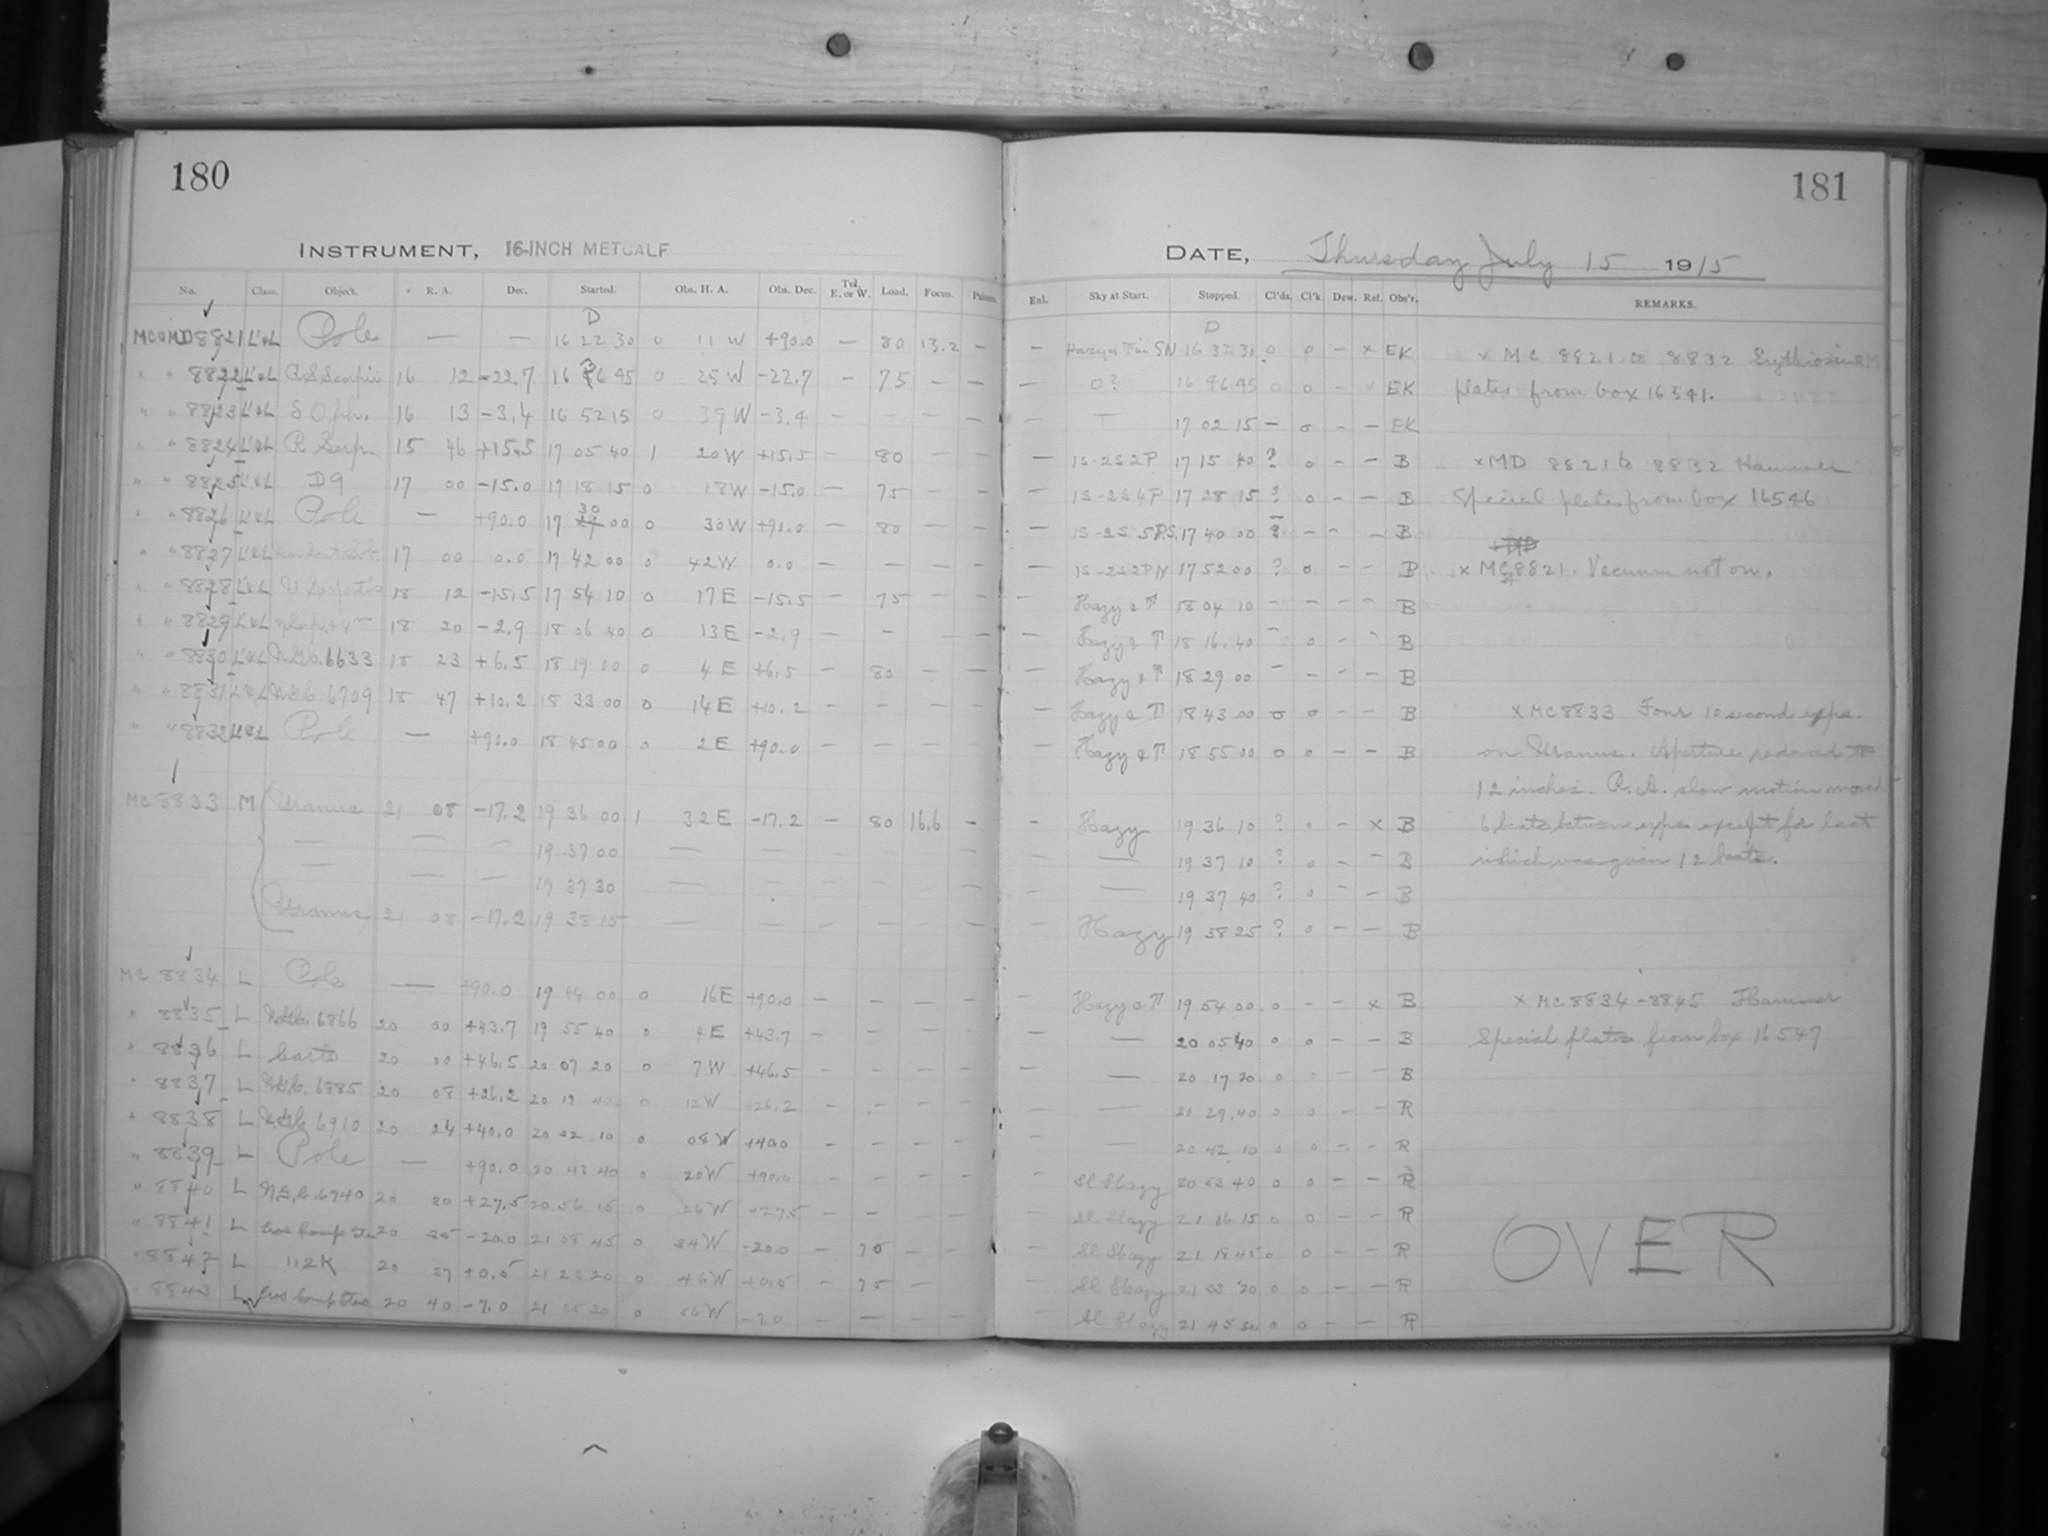 180
INSTRUMENT, 16-INCH METCALF
No. Class. Object. R. A. Dec. Started. Obs. H. A. Obs. Dec. Tel. E. or W. Load. Focus.
MC & MD 8821 L&L Pole — — D 16 22 30 0 11 W +90.0 — 80 13.2 —
" " 8822 L&L 16 12 -22.7 0 25 W -22.7 — 75 — —
" " 8823 L&L S Oph. 16 13 -3.4 16 52 15 0 39 W -3.4 —
" " 8824 L&L R Serp. 15 46 +15.5 17 05 40 1 20 W +15.5 — 80 — —
" " 8825 L&L D9 17 00 -15.0 17 18 15 0 18 W -15.0 — 75 — —
" " 8826 L&L Pole — +90.0 17 30 00 0 30 W +90.0 — 80 — —
" " 8827 L&L 17 00 0.0 17 42 00 0 42 W 0.0 — — — —
" " 8828 L&L 18 12 -15.5 17 54 10 0 17 E -15.5 — 75 — —
" " 8829 L&L 18 20 -2.9 18 06 40 0 13 E -2.9 — — — —
" " 8830 L&L N.G.C. 6633 18 23 +6.5 18 19 00 0 4 E +6.5 — 80 — —
" " 8831 L&L N.G.C. 6709 18 47 +10.2 18 33 00 0 14 E +10.2 — — — —
" " 8832 L&L Pole — +90.0 18 45 00 0 2 E +90.0 — — — —
MC 8833 M Uranus 21 08 -17.2 19 36 00 1 32 E -17.2 — 80 16.6 —
— — — 19 37 00 — — — — — —
— — — 19 37 30 — — — — —
Uranus 21 08 -17.2 19 38 15 — — — — — —
MC 8834 L Pole — +90.0 19 44 00 0 16 E +90.0 — — — —
" 8835 L N.G.C. 6866 20 00 +43.7 19 55 40 0 4 E +43.7 — — — —
" 8836 L 20 00 +46.5 20 07 20 0 7 W +46.5 — — — —
" 8837 L N.G.C. 6885 20 08 +26.2 20 19 40 0 12 W +26.2 — — — —
" 8838 L N.G.C. 6910 20 24 +40.0 20 32 10 0 08 W +40.0 — — — —
" 8839 L Pole — +90.0 20 43 40 0 20 W +90.0 — — — —
" 8840 L N.G.C. 6940 20 30 +27.5 20 56 15 0 26 W +27.5 — — — —
" 8841 L 20 35 -20.0 21 08 45 0 34 W -20.0 — 70 — —
" 8842 L 112K 20 37 +0.5 21 23 20 0 46 W +0.5 — 75 —
" 8843 L 20 40 -7.0 0 56 W -7.0 — — — —
181
DATE, Thursday July 15 1915
Enl. Sky at Start. Stopped. Cl'ds. Cl'k Dew. Ref. Obs'r. REMARKS.
— D 16 32 30 0 0 — x EK x MC 8821 to 8832 Erythrosine
0? 16 46 45 0 0 — EK plates from box 16541.
— 17 02 15 — 0 — — EK
— 1S-2S2P 17 15 40 ? 0 — — B x MD 8821 to 8832 Hammer
— 1S-2S4P 17 28 15 ? 0 — — B Special plates from box 16546
— 17 40 00 ? — — — B
— 1S-2S2PN 17 52 00 ? 0 — — B x MC 8821. Vacuum not on.
— Hazy & 18 04 10 — — — — B
— Hazy & 18 16 40 — 0 — — B
— Hazy & 18 29 00 — — — — B
— Hazy & 18 43 00 0 0 — — B x MC 8833 Four 10 second exps.
— Hazy & 18 55 00 0 0 — — B on Uranus. Aperture reduced to
12 inches. R. A. slow motion moved
— Hazy 19 36 10 ? 0 — x B 6 beats between exps except for last
— — 19 37 10 ? 0 — — B which was given 12 beats.
— — 19 37 40 ? 0 — — B
— Hazy 19 38 25 ? 0 — — B
— Hazy & 19 54 00 0 — — x B x MC 8834-8845 Hammer
— 20 05 40 0 0 — — B Special plates from box 16547
— 20 17 20 0 0 — — B
— — 20 29 40 0 0 — — R
— — 20 42 10 0 0 — — R
— Sl Hazy 20 53 40 0 0 — — R
— Sl Hazy 21 06 15 0 0 — — R
— Sl Hazy 21 18 45 0 0 — — R
— Sl Hazy 21 33 20 0 0 — — R
— Sl Hazy 21 45 30 0 0 — — R
OVER